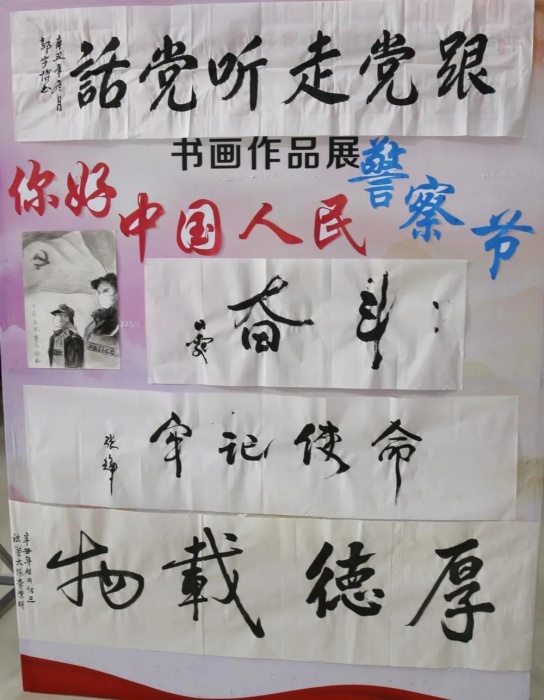 跟党走听党話
辛丑年冬月
书画作品展
你好
中国人民警察节
奋斗
POLICE
牢记使命
厚德載物
辛丑年腊月初三